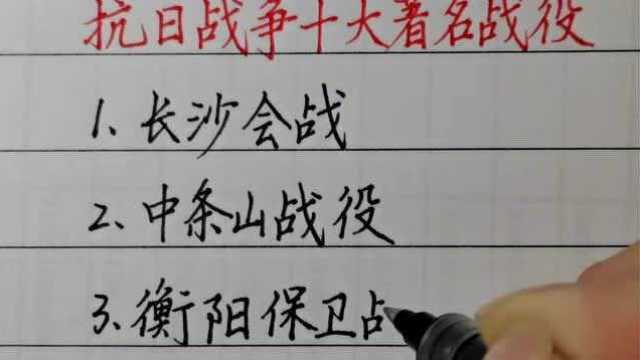 抗日战争十大著名战役
1、长沙会战
2、中条山战役
3、衡阳保卫占